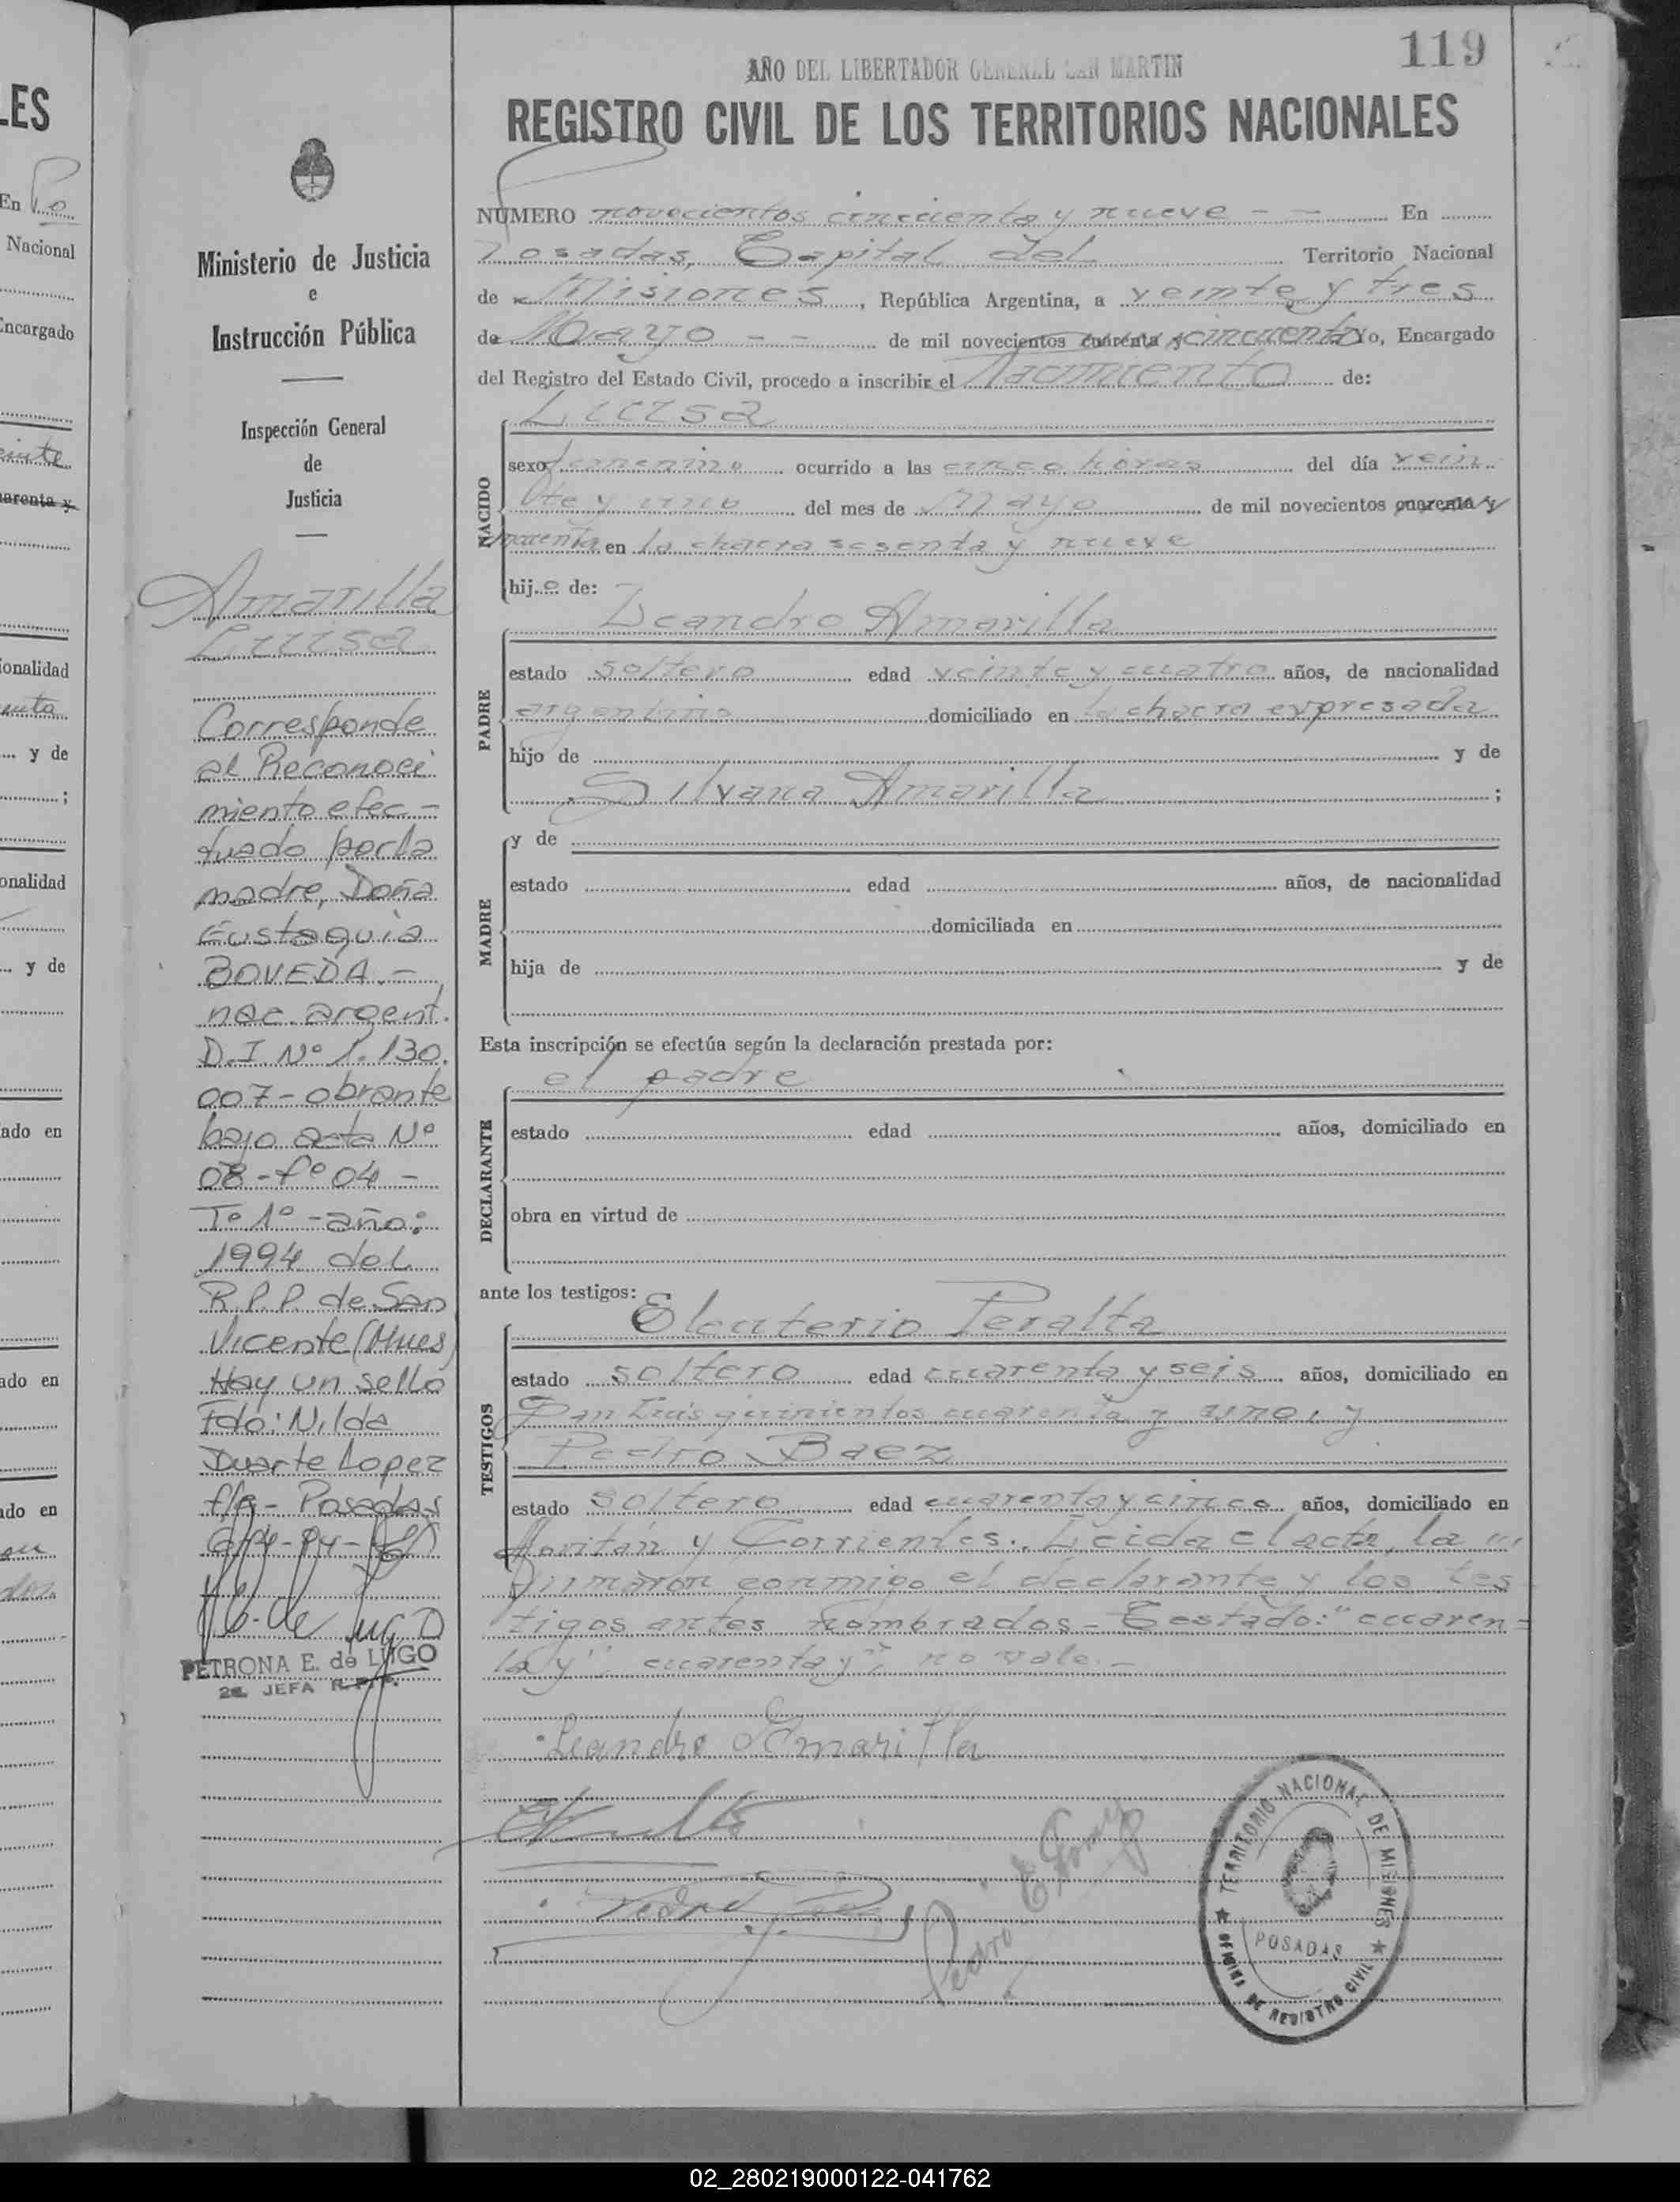 119
AÑO DEL LIBERTADOR GENERAL SAN MARTIN
REGISTRO CIVIL DE LOS TERRITORIOS NACIONALES
Ministerio de Justicia
e
Instrucción Pública
Inspección General
de
Justicia
Amarilla
Luisa
Corresponde
al Reconoci
miento efec-
tuado por la
madre, Doña
Eustaquia
BOVEDA.-
nac. argent.
D.I. Nº 1.130.
007- obrante
bajo acta Nº
08-fº 04-
Tº 1º -año:
1994 del
R.P.P. de San
Vicente (Mnes)
Hay un sello
Fdo: Nilda
Duarte Lopez
Posadas
PETRONA E. de LUGO
2a. JEFA R.P.P.
NÚMERO novecientos cincuenta y nueve - - En
Posadas, Capital del Territorio Nacional
de Misiones, República Argentina, a veinte y tres
de Mayo - - de mil novecientos cuarenta y cincuenta Yo, Encargado
del Registro del Estado Civil, procedo a inscribir el Nacimiento de:
NACIDO
Luisa
sexo femenino ocurrido a las cinco horas del día vein
te y uno del mes de mayo de mil novecientos cuarenta y
cincuenta en la chacra sesenta y nueve
hij.o de:
PADRE
Leandro Amarilla
estado soltero edad veinte y cuatro años, de nacionalidad
argentino domiciliado en la chacra expresada
hijo de y de
Silvana Amarilla ;
MADRE
y de
estado edad años, de nacionalidad
domiciliada en
hija de y de
Esta inscripción se efectúa según la declaración prestada por:
DECLARANTE
el padre
estado edad años, domiciliado en
obra en virtud de
ante los testigos:
TESTIGOS
Eleuterio Peralta
estado soltero edad cuarenta y seis años, domiciliado en
San Luis quinientos cuarenta y uno, y
Pedro Baez
estado soltero edad cuarenta y cinco años, domiciliado en
y Corrientes. Leida el acta, la
firmaron conmigo el declarante y los tes
tigos antes nombrados_ Testado: "cuaren=
ta y" "cuarenta y" no vale.-
Leandro Amarilla
TERRITORIO NACIONAL DE MISIONES
POSADAS
OFICINA DE REGISTRO CIVIL
02_280219000122-041762